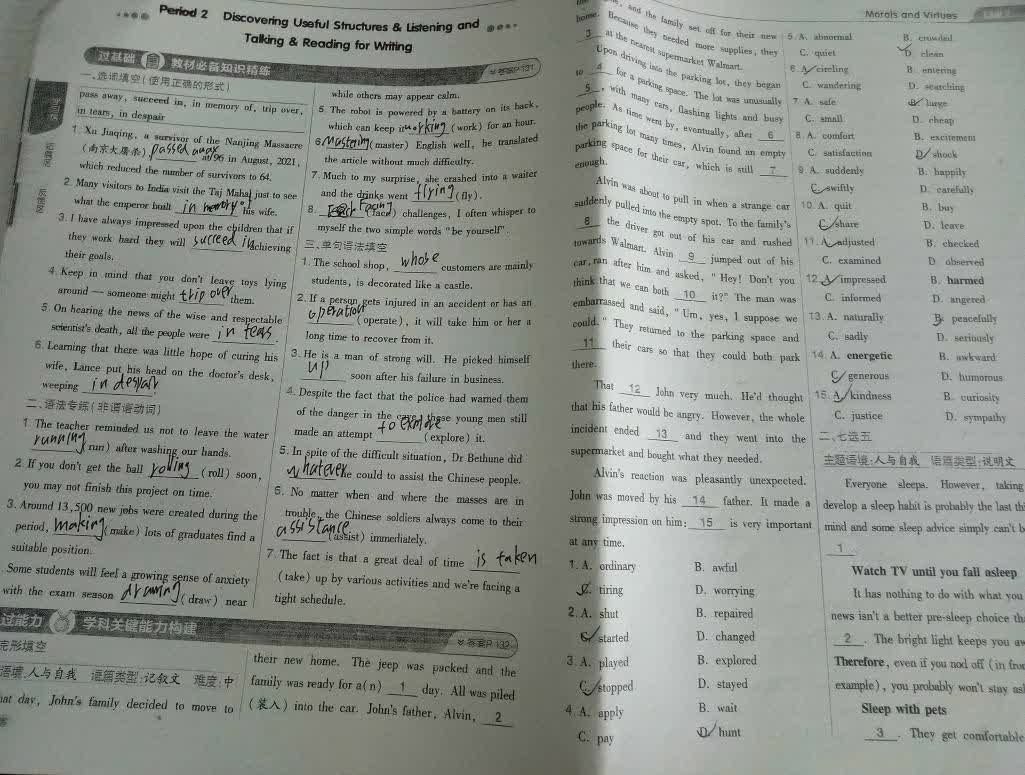 Period 2 Discovering Useful Structures & Listening and
Talking & Reading for Writing
过基础 教材必备知识精练
答案P131
一、选词填空(使用正确的形式)
pass away, succeed in, in memory of, trip over,
in tears, in despair
1. Xu Jiaqing, a survivor of the Nanjing Massacre
(南京大屠杀) passed away at 96 in August, 2021,
which reduced the number of survivors to 64.
2. Many visitors to India visit the Taj Mahal just to see
what the emperor built in memory of his wife.
3. I have always impressed upon the children that if
they work hard they will succeed in achieving
their goals.
4. Keep in mind that you don't leave toys lying
around — someone might trip over them.
5. On hearing the news of the wise and respectable
scientist's death, all the people were in tears.
6. Learning that there was little hope of curing his
wife, Lance put his head on the doctor's desk,
weeping in despair
二、语法专练(非谓语动词)
1. The teacher reminded us not to leave the water
running (run) after washing our hands.
2. If you don't get the ball rolling (roll) soon,
you may not finish this project on time.
3. Around 13,500 new jobs were created during the
period, making (make) lots of graduates find a
suitable position.
Some students will feel a growing sense of anxiety
with the exam season drawing (draw) near
while others may appear calm.
5. The robot is powered by a battery on its back,
which can keep it working (work) for an hour.
6. Mastering (master) English well, he translated
the article without much difficulty.
7. Much to my surprise, she crashed into a waiter
and the drinks went flying (fly).
8. Facing (face) challenges, I often whisper to
myself the two simple words "be yourself".
三、单句语法填空
1. The school shop, whose customers are mainly
students, is decorated like a castle.
2. If a person gets injured in an accident or has an
operation (operate), it will take him or her a
long time to recover from it.
3. He is a man of strong will. He picked himself
up soon after his failure in business.
4. Despite the fact that the police had warned them
of the danger in the cave, these young men still
made an attempt to explore (explore) it.
5. In spite of the difficult situation, Dr Bethune did
whatever he could to assist the Chinese people.
6. No matter when and where the masses are in
trouble, the Chinese soldiers always come to their
assistance (assist) immediately.
7. The fact is that a great deal of time is taken
(take) up by various activities and we're facing a
tight schedule.
过能力 学科关键能力构建
答案P132
完形填空
语境:人与自我 语篇类型:记叙文 难度:中
at day, John's family decided to move to
their new home. The jeep was packed and the
family was ready for a(n) 1 day. All was piled
(装入) into the car. John's father, Alvin, 2
and the family set off for their new
home. Because they needed more supplies, they
3 at the nearest supermarket Walmart.
Upon driving into the parking lot, they began
to 4 for a parking space. The lot was unusually
5, with many cars, flashing lights and busy
people. As time went by, eventually, after 6
the parking lot many times, Alvin found an empty
parking space for their car, which is still 7
enough.
Alvin was about to pull in when a strange car
suddenly pulled into the empty spot. To the family's
8 the driver got out of his car and rushed
towards Walmart. Alvin 9 jumped out of his
car, ran after him and asked, "Hey! Don't you
think that we can both 10 it?" The man was
embarrassed and said, "Um, yes, I suppose we
could." They returned to the parking space and
11 their cars so that they could both park
there.
That 12 John very much. He'd thought
that his father would be angry. However, the whole
incident ended 13 and they went into the
supermarket and bought what they needed.
Alvin's reaction was pleasantly unexpected.
John was moved by his 14 father. It made a
strong impression on him: 15 is very important
at any time.
1. A. ordinary B. awful
C. tiring D. worrying
2. A. shut B. repaired
C. started D. changed
3. A. played B. explored
C. stopped D. stayed
4. A. apply B. wait
C. pay D. hunt
Morals and Virtues
5. A. abnormal B. crowded
C. quiet D. clean
6. A. circling B. entering
C. wandering D. searching
7. A. safe B. large
C. small D. cheap
8. A. comfort B. excitement
C. satisfaction D. shock
9. A. suddenly B. happily
C. swiftly D. carefully
10. A. quit B. buy
C. share D. leave
11. A. adjusted B. checked
C. examined D. observed
12. A. impressed B. harmed
C. informed D. angered
13. A. naturally B. peacefully
C. sadly D. seriously
14. A. energetic B. awkward
C. generous D. humorous
15. A. kindness B. curiosity
C. justice D. sympathy
二、七选五
主题语境:人与自我 语篇类型:说明文
Everyone sleeps. However, taking
develop a sleep habit is probably the last thi
mind and some sleep advice simply can't b
1
Watch TV until you fall asleep
It has nothing to do with what you
news isn't a better pre-sleep choice th
2. The bright light keeps you aw
Therefore, even if you nod off (in fro
example), you probably won't stay asl
Sleep with pets
3. They get comfortable